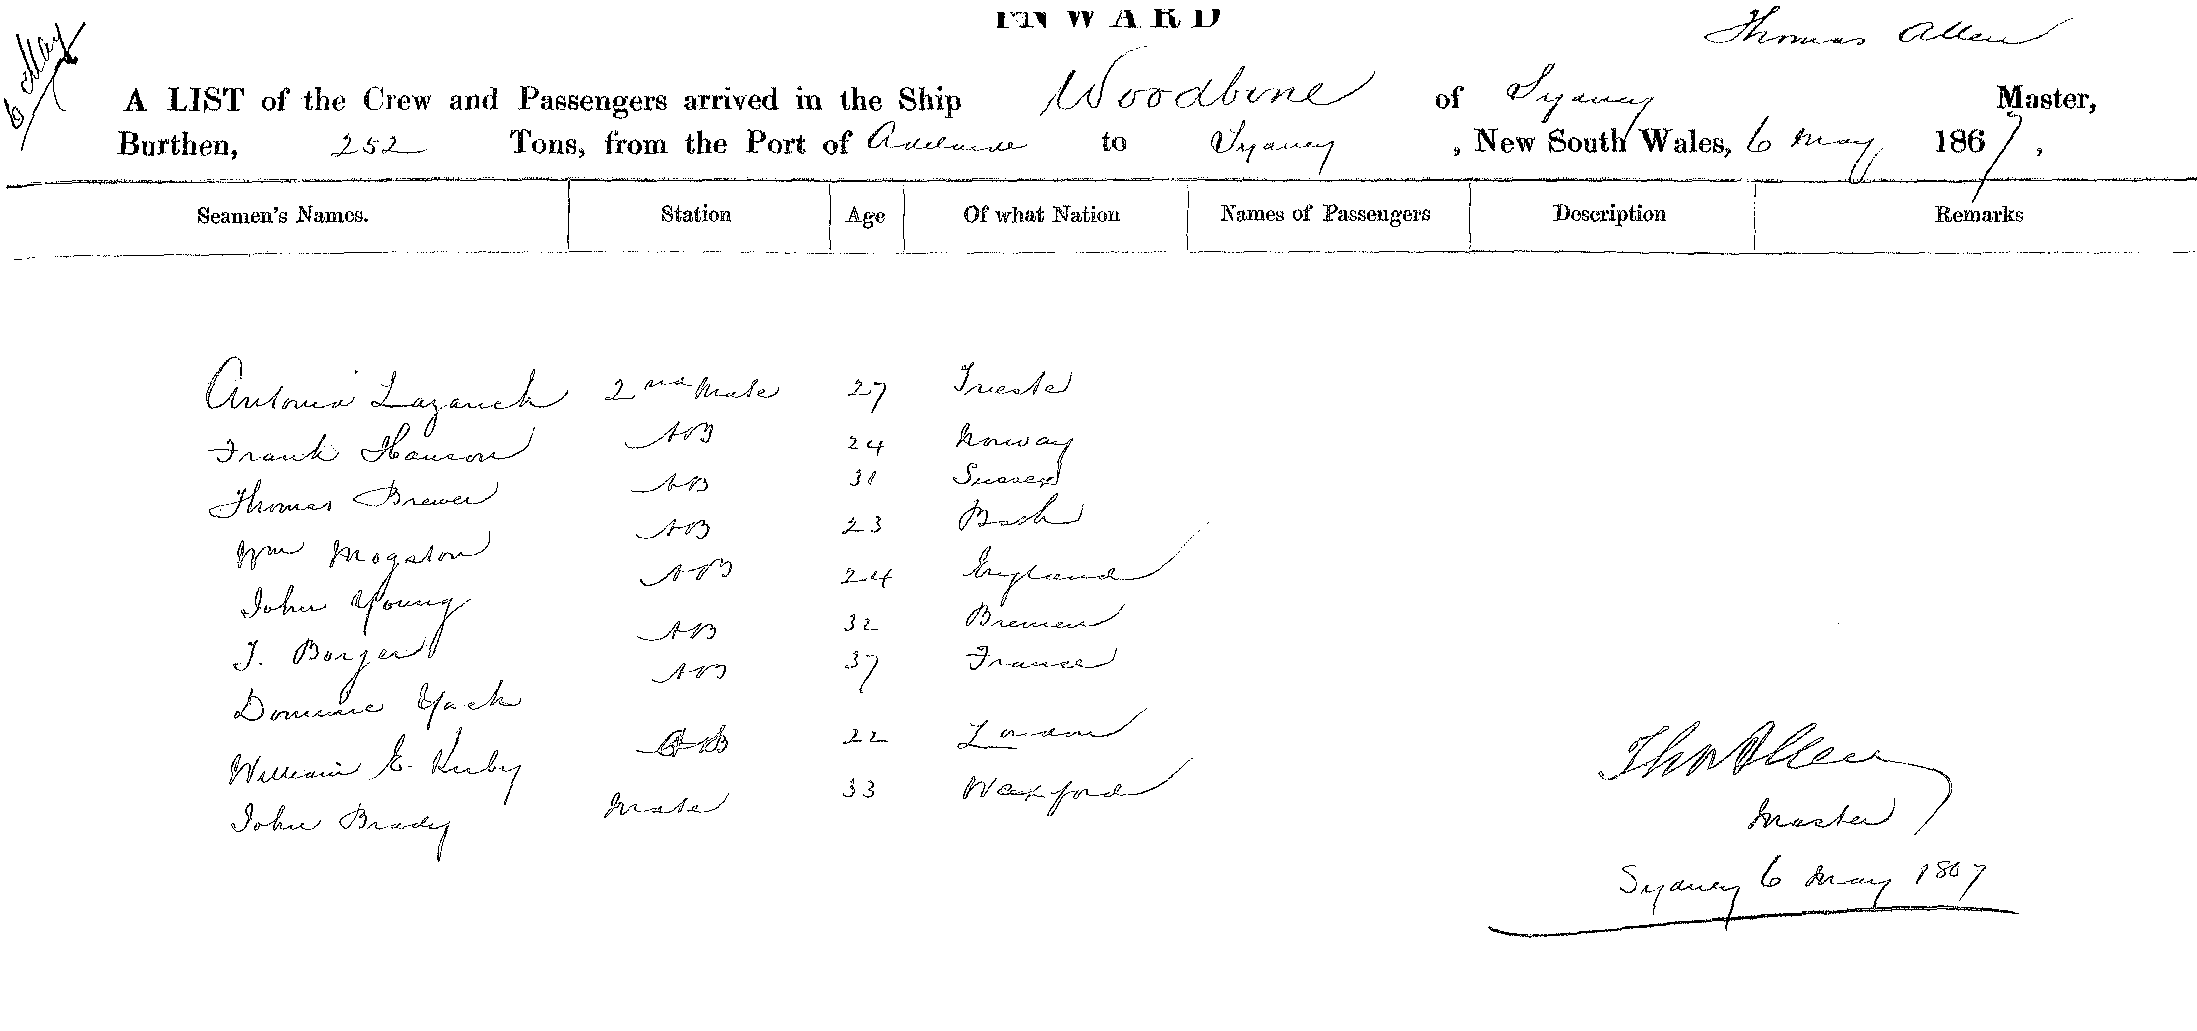 INWARD
6 May
Thomas Allen
A LIST of the Crew and Passengers arrived in the Ship Woodbine of Sydney Master,
Burthen, 252 Tons, from the Port of Adelaide to Sydney, New South Wales, 6 May 1867,
Seamen's Names. Station Age Of what Nation Names of Passengers Description Remarks
Antonio Lazarich 2nd Mate 27 Trieste
Frank Hanson AB 24 Norway
Thomas Brewer AB 31 Sussex
Wm Mogston AB 23
John Young AB 24 England
J. Borger AB 32 Bremen
Dominic Yack AB 37 France
William E. Kirby AB 22 London
John Brady Mate 33 Wexford
Thos Allen
Master
Sydney 6 May 1867